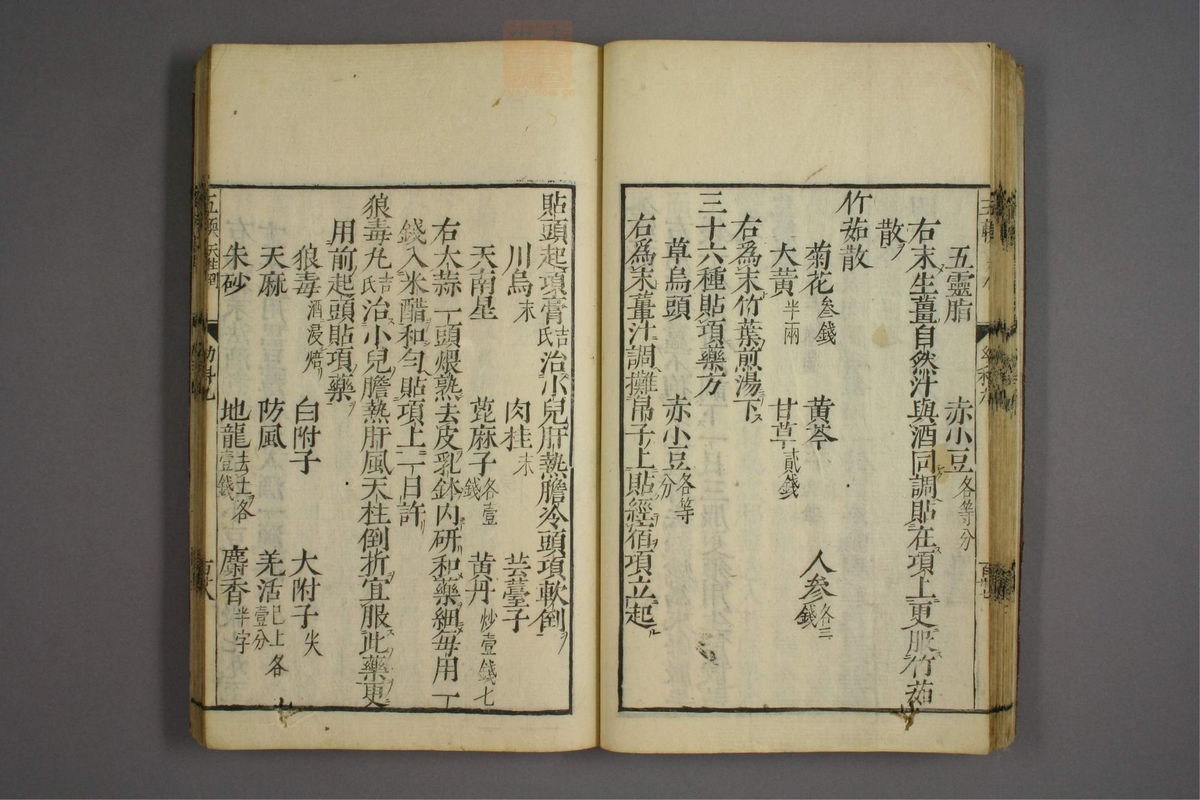 五靈脂 赤小豆各等分
右末生薑自然汁與酒同調貼在項上更服竹茹
散
竹茹散
菊花叄錢 黃芩 人參各三錢
大黃半兩 甘草貳錢
右爲末竹葉煎湯下
三十六種貼項藥方
草烏頭 赤小豆各等分
右爲末薑汁調攤帛子上貼經宿項立起
貼頭起項膏吉氏治小兒肝熱膽冷頭項軟倒
川烏末 肉桂末 芸薹子
天南星 蓖麻子各壹錢 黃丹炒壹錢七
右大蒜一丁頭煨熟去皮乳鉢内研和藥細每用一
錢入米醋和勻貼項上一日許
狼毒丸吉氏治小兒膽熱肝風天柱倒折宜服此藥更
用前起頭貼項藥
狼毒酒浸焙 白附子 大附子尖
天麻 防風 羌活已上各壹分
朱砂 地龍去土各壹錢 麝香半字